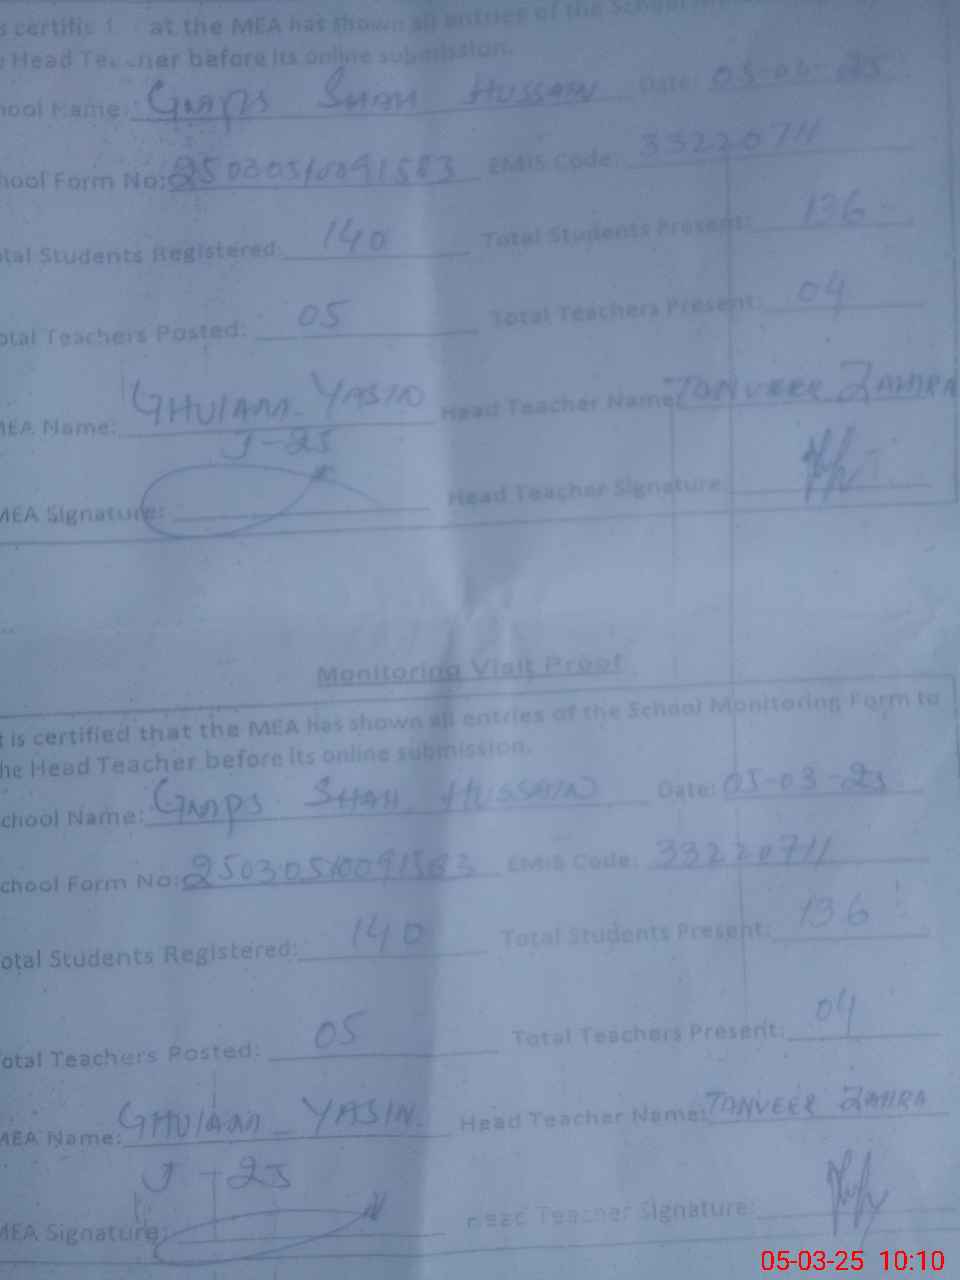 at the MEA has shown all entries of the School
Head Teacher before its online submission.
hool Name: GMPS SHAH HUSSAIN Date: 05-03-25
hool Form No: 25030510091583 EMIS Code: 33220711
tal Students Registered: 140 Total Students Present: 136
otal Teachers Posted: 05 Total Teachers Present: 04
MEA Name: GHULAM YASIN Head Teacher Name: TANVEER ZAHRA
J-25
MEA Signature: Head Teacher Signature:
Monitoring Visit Proof
t is certified that the MEA has shown all entries of the School Monitoring Form to
he Head Teacher before its online submission.
chool Name: GMPS SHAH HUSSAIN Date: 05-03-25
chool Form No: 25030510091583 EMIS Code: 33220711
otal Students Registered: 140 Total Students Present: 136
otal Teachers Posted: 05 Total Teachers Present: 04
MEA Name: GHULAM YASIN Head Teacher Name: TANVEER ZAHRA
J-25
MEA Signature: Head Teacher Signature:
05-03-25 10:10